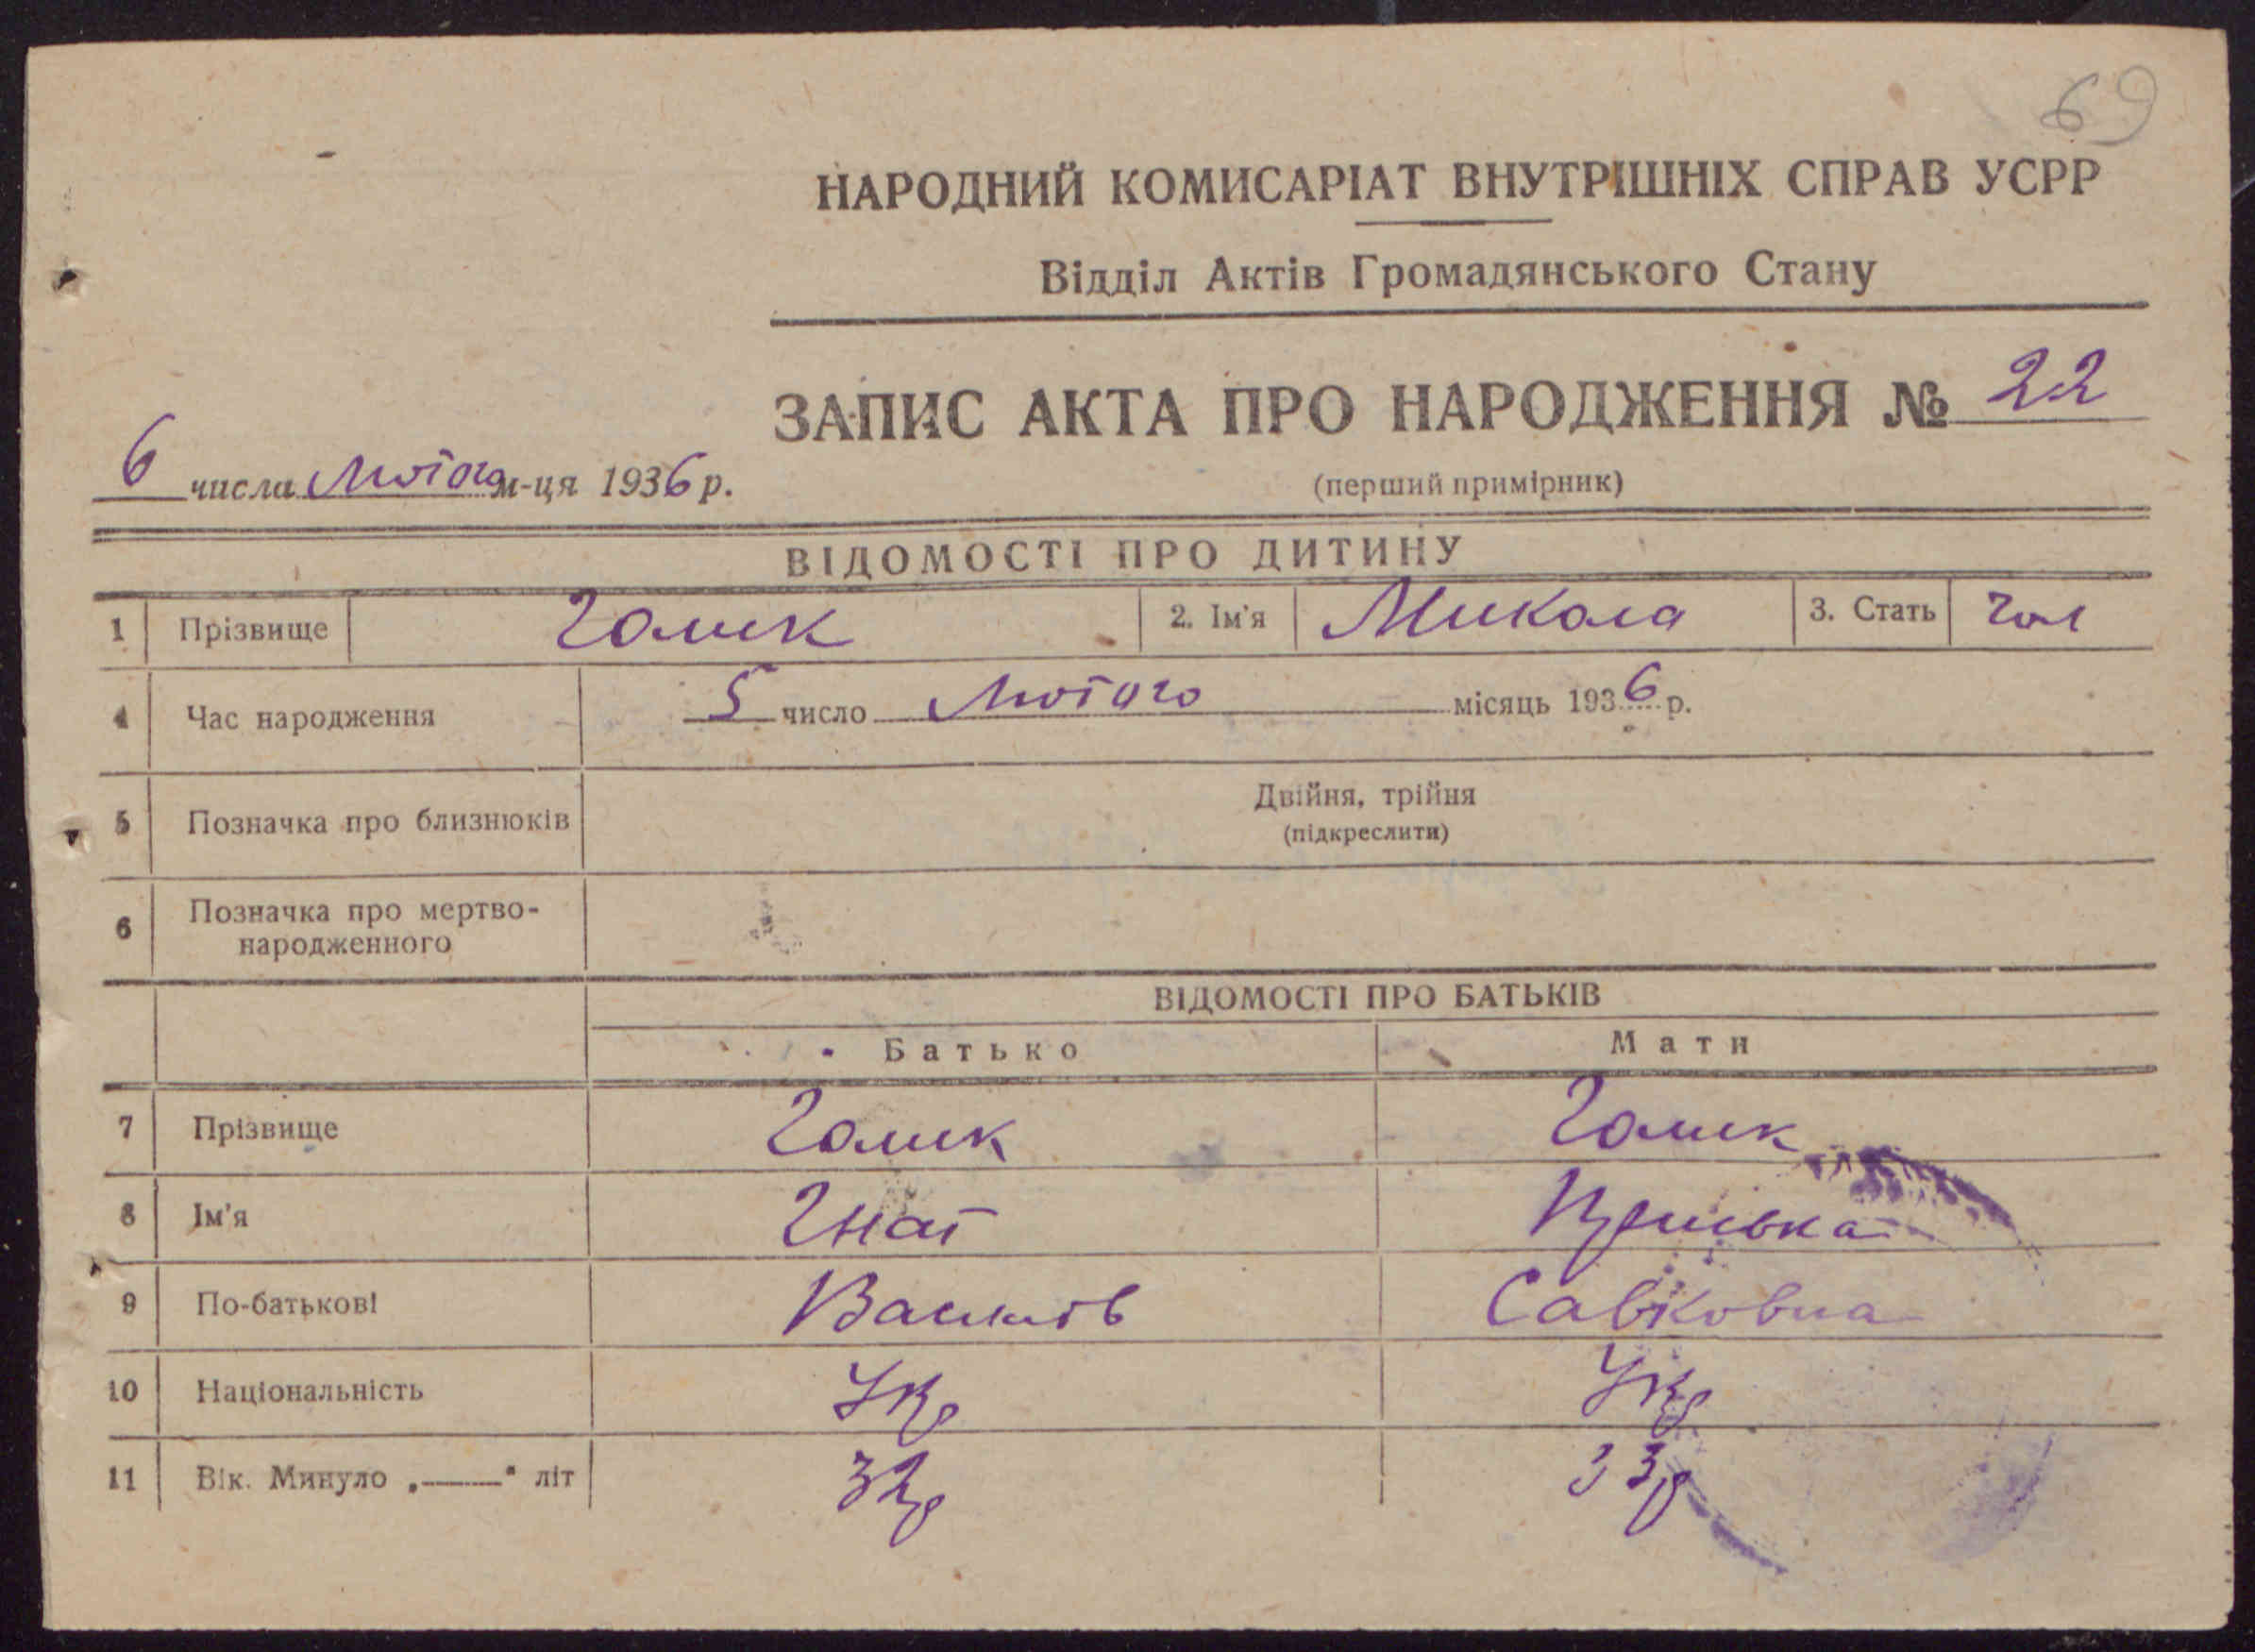 69
НАРОДНИЙ КОМИСАРІАТ ВНУТРІШНІХ СПРАВ УСРР
Відділ Актів Громадянського Стану
ЗАПИС АКТА ПРО НАРОДЖЕННЯ № 22
6 числа Лютого м-ця 1936 р.
(перший примірник)
ВІДОМОСТІ ПРО ДИТИНУ
1 Прізвище Голик 2. Ім'я Микола 3. Стать чол
4 Час народження 5 число Лютого місяць 1936 р.
5 Позначка про близнюків Двійня, трійня
(підкреслити)
6 Позначка про мертво-
народженного
ВІДОМОСТІ ПРО БАТЬКІВ
Батько Мати
7 Прізвище Голик Голик
8 Ім'я Гнат
9 По-батькові Василів Савковна
10 Національність Укр Укр
11 Вік. Минуло „——" літ 32р 33р